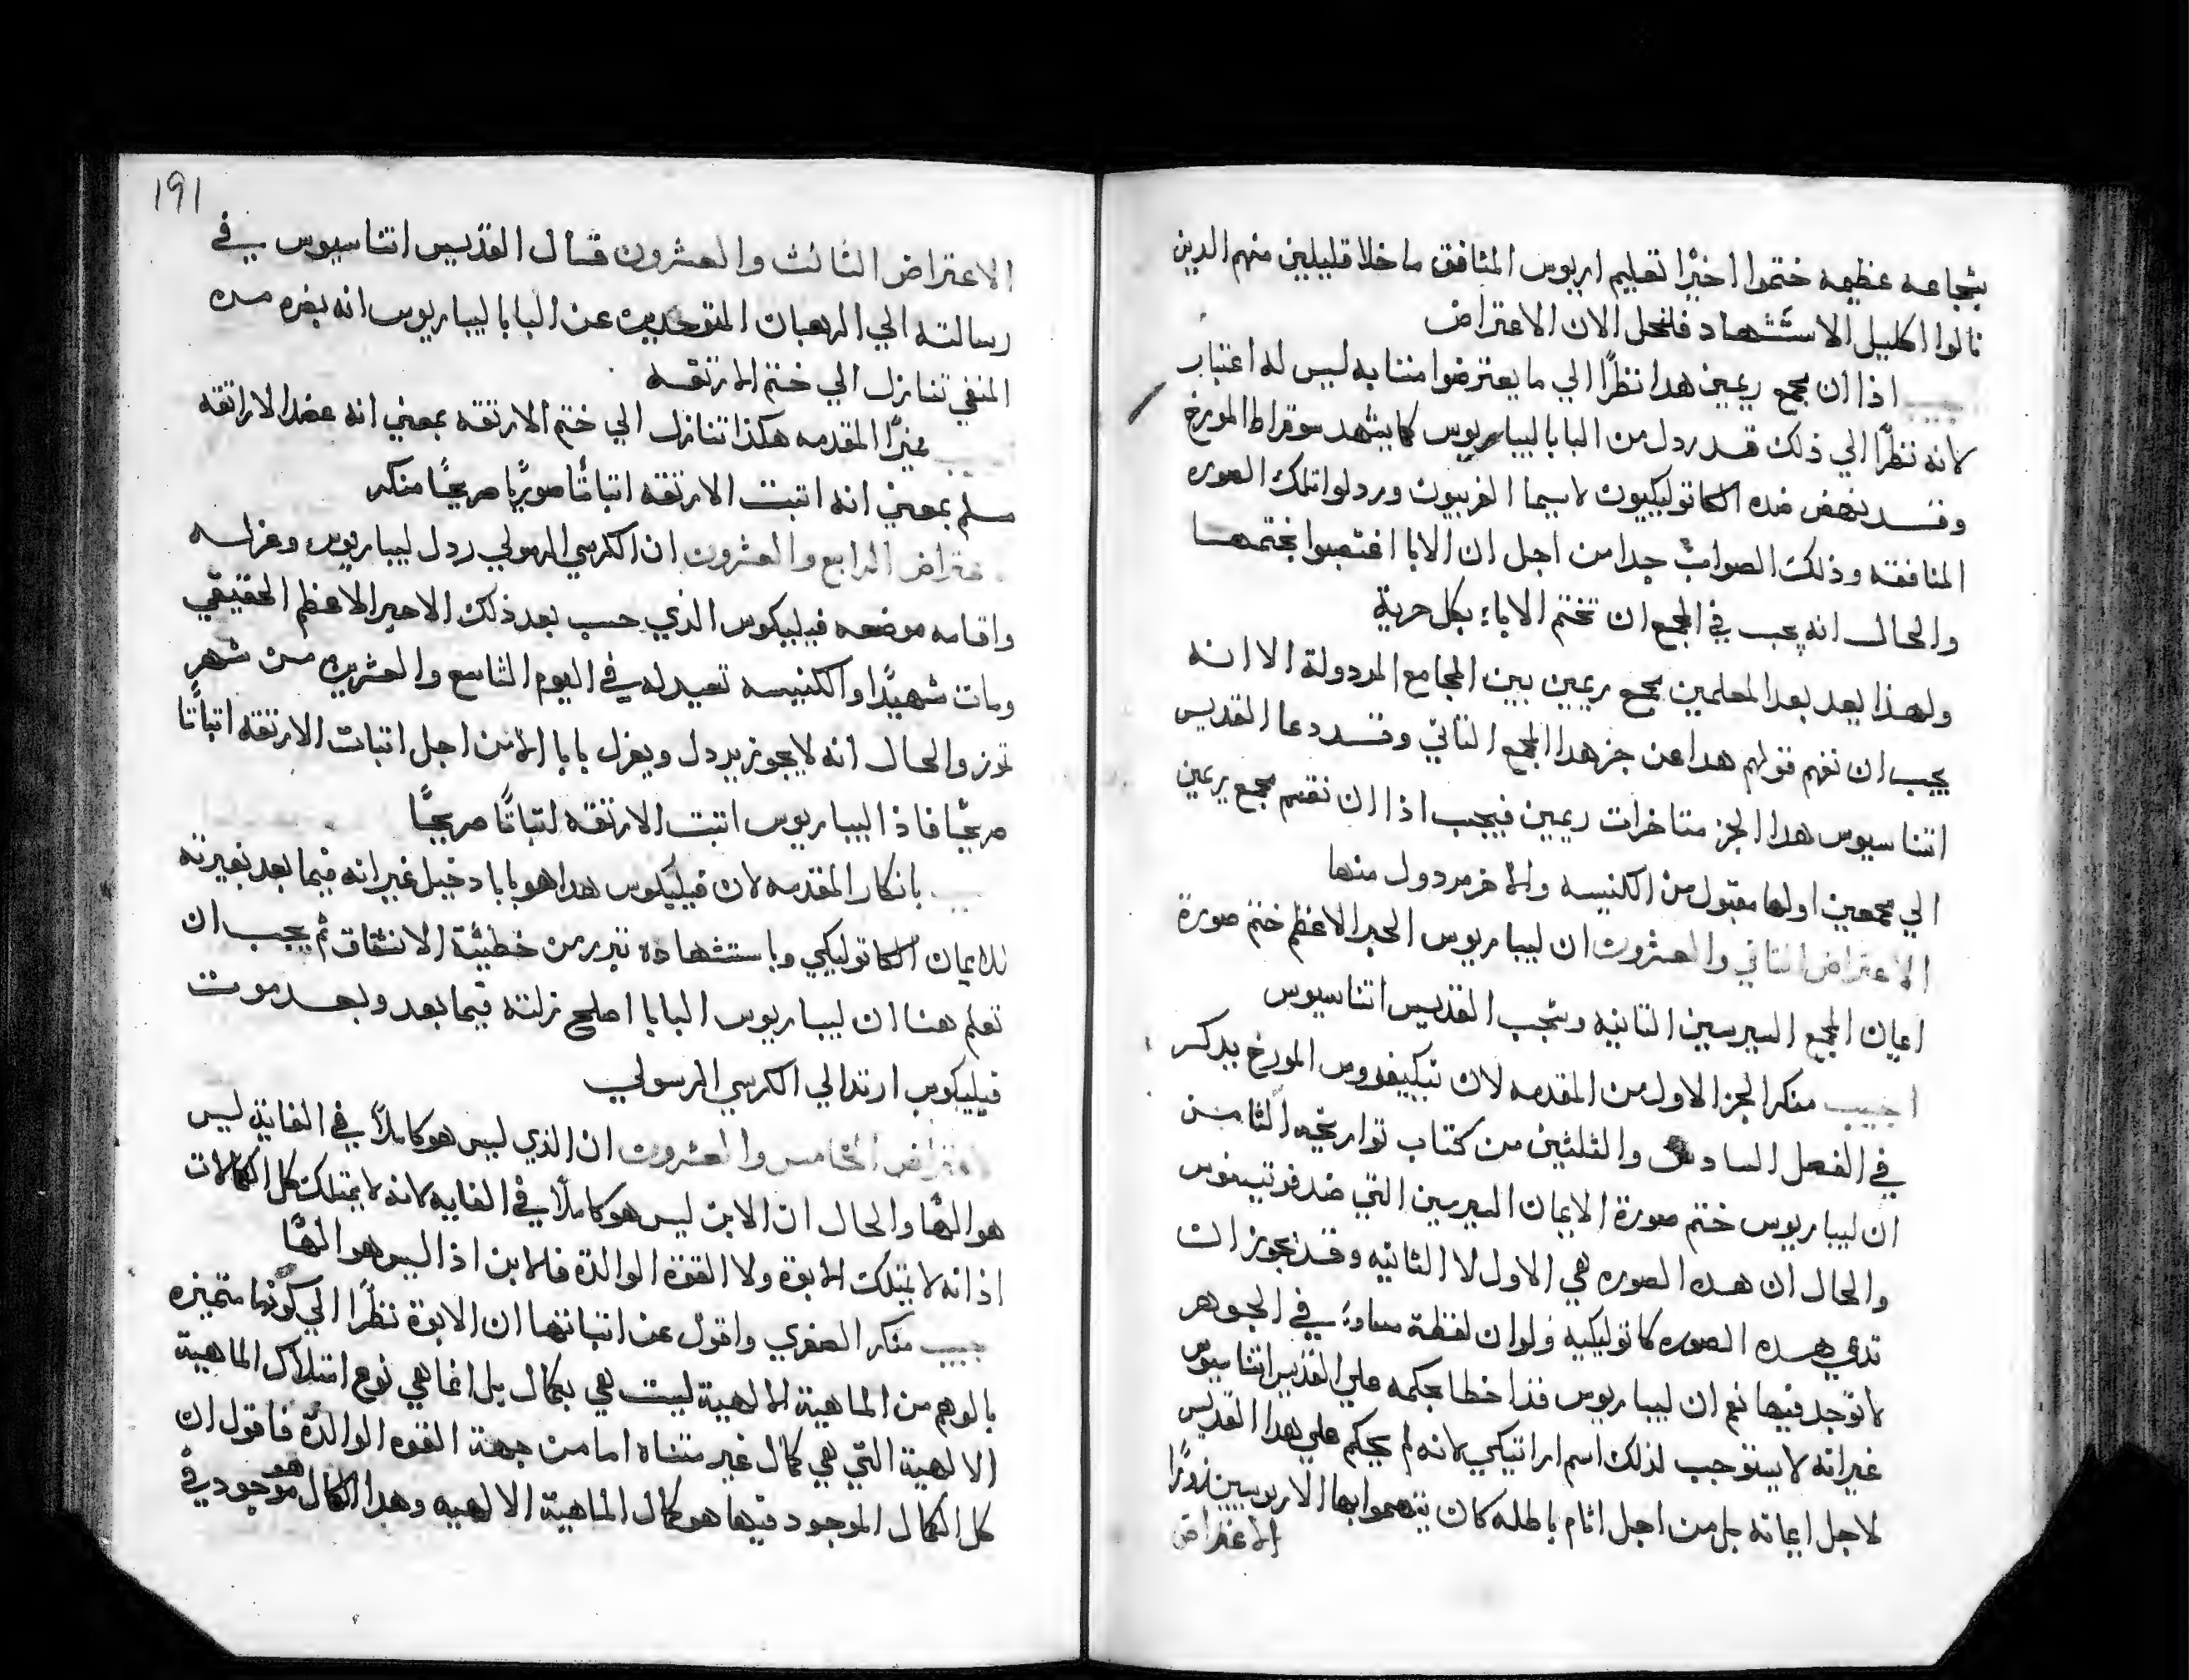 بشجاعه عظيمه ختموا اخيرًا تعليم اريوس المنافق ما خلا قليلين منهم الدين
نالوا اكليل الاستشهاد فلنحل الان الاعتراض
اذا ان مجمع ريمين هدا نظرًا الي ما يعترضوا مننا به ليس له اعتبار
لانه نظرًا الي ذلك قد ردل من البابا ليباريوس كما يشهد سوقراط المورخ
وقد نهض ضده الكاتوليكيون لاسيما الغربيون وردلوا تلك الصوره
المنافقه وذلك لصواب جدا من اجل ان الابا اغتصبوا بختمها
والحال انه يجب في المجمع ان تختم الاباء بكل حرية
ولهذا يعد بعد المعلمين مجمع ريمين بين المجامع المردولة الا انه
يجب ان نفهم قولهم هدا عن جز هدا المجمع التاني وقد دعا القديس
اتناسيوس هدا الجز متاخرات ريمين فيجب اذا ان نقسم مجمع ريمين
الي مجمعين اولها مقبول من الكنيسه والاخر مردول منها
الاعتراض التاني والعشرون ان ليباريوس الحبر الاعظم ختم صورة
ايمان المجمع السيرمين التانيه وشجب القديس اتناسيوس
اجيب منكر الجز الاول من المقدمه لان نيكيفوروس المورخ يدكر
في الفصل السادس والثلثين من كتاب تواريخه الثامن
ان ليباريوس ختم صورة الايمان السيرمين التي ضد فوتينوس
والحال ان هده الصوره هي الاول لا الثانيه وقد يجوز ان
تدعي هده الصوره كاتوليكيه ولو ان لفظة مساوء في الجوهر
لا توجد فيها نعم ان ليباريوس قد اخطا بحكمه علي القديس اتناسيوس
غير انه لا يستوجب لذلك اسم اراتيكي لانه لم يحكم علي هدا القديس
لاجل ايمانه بل من اجل اثام باطله كان يتهموا بها الاريوسيين زورًا
الاعتراض
١٩١
الاعتراض الثالث والعشرون قال القديس اتناسيوس في
رسالته الي الرهبان المتوحدين عن البابا ليباريوس انه بضره مده
المنفي تنازل الي ختم الارتقه
مميزًا المقدمه هكذا تنازل الي ختم الارتقه بمعني انه عضد الاراتقه
مسلم بمعني انه اتبت الارتقه اتباتًا صوريًا صريحًا منكر
الرابع والعشرون ان الكرسي الرسولي ردل ليباريوس وعزله
واقامه موضعه فيليكوس الذي حسب بعد ذلك الاحبر الاعظم الحقيقي
ومات شهيدًا والكنيسه تعيد له في اليوم التاسع والعشرين من شهر
تموز والحال انه لا يجوز يردل ويعزل بابا الا من اجل اتبات الارتقه اتباتًا
صريحًا فاذا ليباريوس اتبت الارتقه اتباتًا صريحًا
بانكار المقدمه لان فيليكوس هدا هو بابا دخيل غير انه فيما بعد بغيرته
للايمان الكاتوليكي وباستشهاده تبرر من خطيئة الانشقاق ثم يجب ان
تعلم هنا ان ليباريوس البابا اصلح زلته فيما بعد وبعد موت
فيليكوس ارتد الي الكرسي الرسولي
الخامس والعشرون ان الذي ليس هو كاملاً في الغاية ليس
هو الهًا والحال ان الابن ليس هو كاملاً في الغايه لانه لا يمتلك كل الكمالات
اذ انه لا يمتلك الابوة ولا القوة الوالدة فالابن اذا ليس هو الهًا
اجيب منكر الصغري واقول عن اتباتها ان الابوة نظرًا الي كونها متميزه
بالوهم من الماهية الالهية ليست هي بكمال بل انما هي نوع امتلاك الماهية
الالهية التي هي كمال غير متناه اما من جهة القوه الوالدة فاقول ان
كل الكمال الموجود فيها هو كمال الماهية الالهيه وهدا الكمال هو موجود في